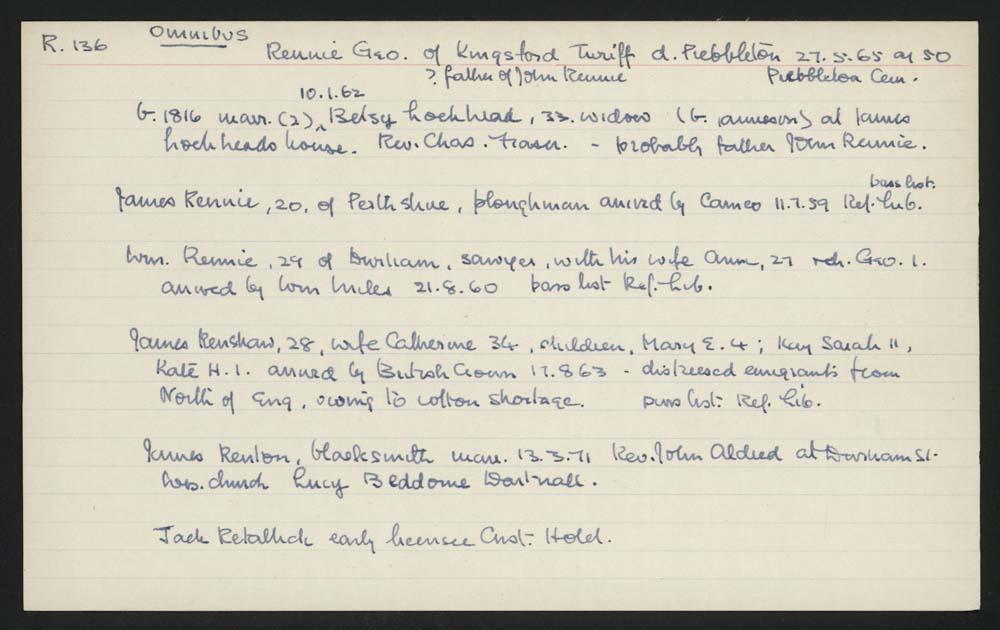 R. 136 Omnibus
Rennie Geo. of Kingsford Turiff d. Prebbleton 27.5.65 aq 50
? father of John Rennie Prebbleton Cem.
10.1.62
b. 1816 marr. (2) Betsy Lochhead, 33. widow (b. ) at James
Lochheads house. Rev. Chas. Fraser. - probably father John Rennie.
pass list.
James Rennie, 20, of Perthshire, ploughman arrived by Cameo 11.7.59 Ref. Lib.
Wm. Rennie, 29 of Durham, sawyer, with his wife Ann, 27 Geo. 1.
arrived by Wm Miles 21.8.60 pass list Ref. Lib.
James Renshaw, 28, wife Catherine 34, children, Mary E. 4; Sarah 11,
Kate H. 1. arrived by British Crown 17.8.63 - distressed emigrants from
North of Eng, owing to cotton shortage. pass list. Ref. Lib.
James Renton, blacksmith marr. 13.3.71 Rev. John Aldred at Durham St.
Wes. church Lucy Beddome Dartnall.
Jack Retallick early licensee Cust. Hotel.